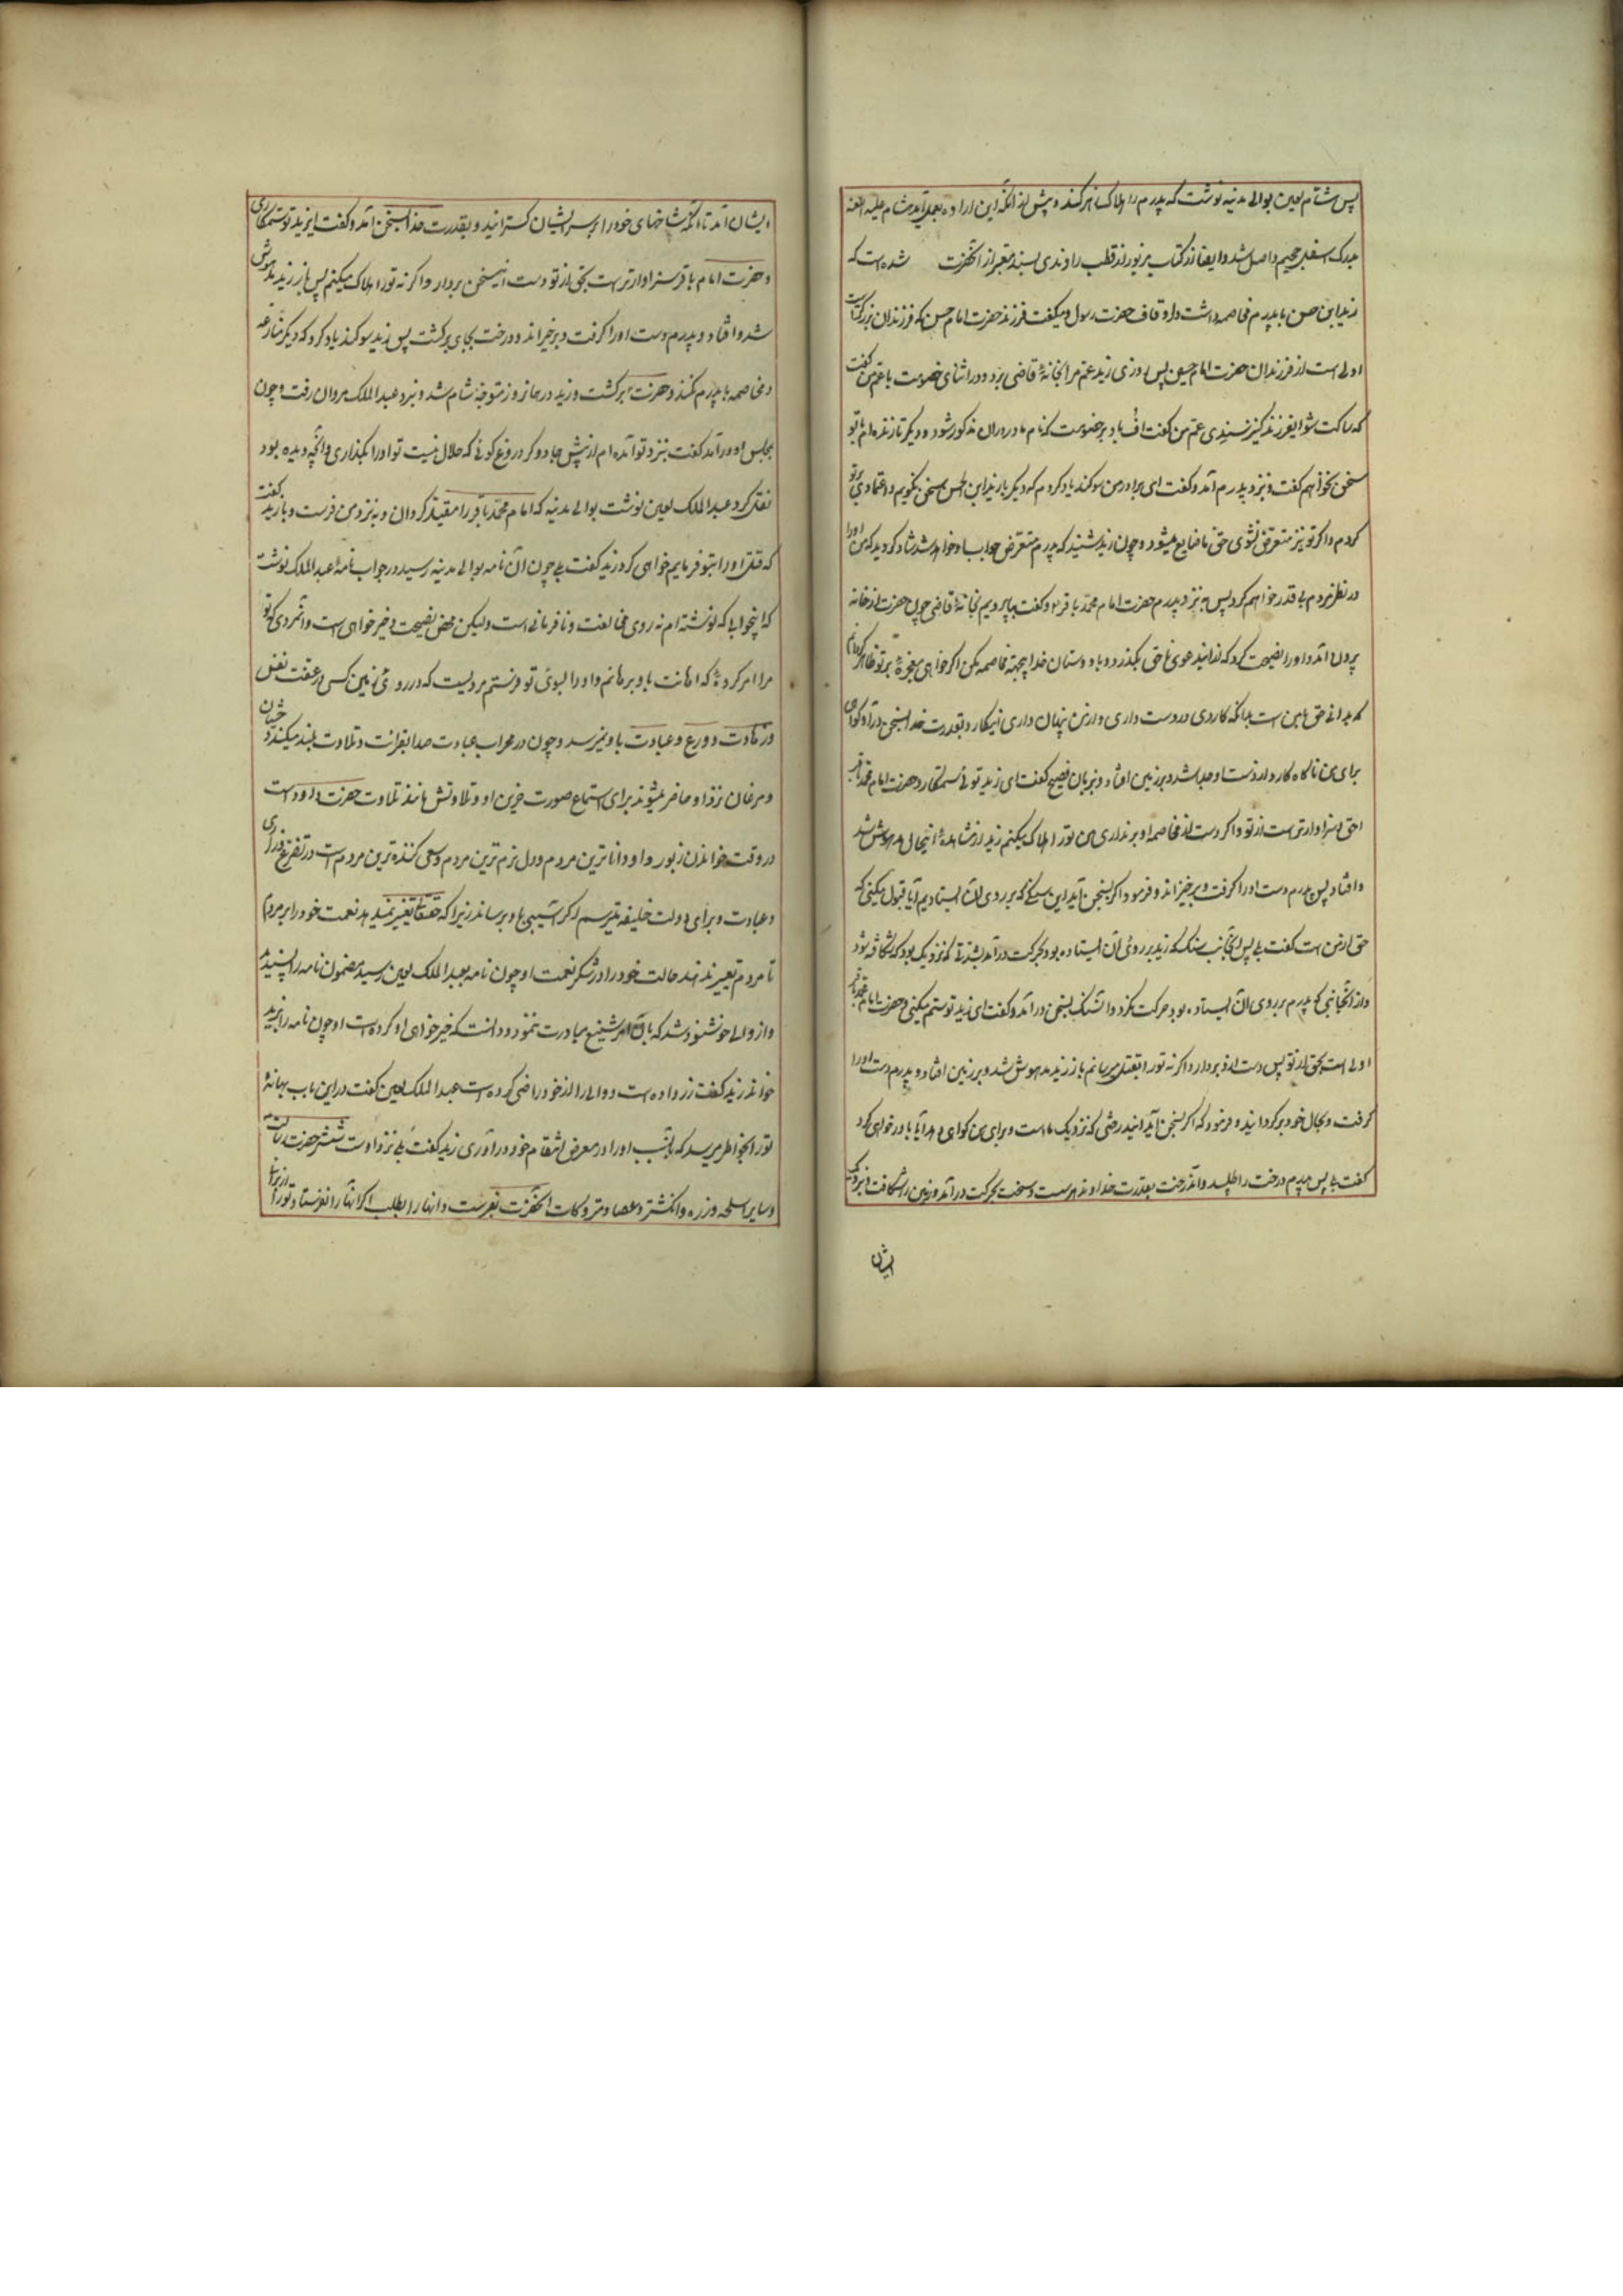 پس هشام لعین بوالی مدینه نوشت که پدرم را هلاک بزهر کند و پیش از آنکه این اراده بعمل آید هشام علیه اللعنه
بدرک اسفل جحیم واصل شد و ایضا از کتاب مزبور از قطب راوندی بسند معتبر از آنحضرت شده است که
زید ابن حسن با پدرم مخاصمه داشت در اوقاف حضرت رسول و میگفت فرزند حضرت امام حسن که فرزندان بزرگتر است
اولی است از فرزندان حضرت امام حسین پس روزی زید عم مرا بخانهٔ قاضی برد و در اثنای خصومت با عم من گفت
که ساکت شو ایفرزند کنیز سندی عم من گفت اف باد بر خصومت که نام مادر در ان مذکور شود و دیگر تا زنده ام با تو
سخن نخواهم گفت و بنزد پدرم آمد و گفت ای برادر من سوگند یاد کردم که دیگر با زید ابن الحسن سخن نگویم و اعتماد بر تو
کردم و اگر تو نیز متعرض نشوی حق ما ضایع میشود و چون زید شنید که پدرم متعرض جواب او خواهد شد شاد گردید که من او را
در نظر مردم بی قدر خواهم کرد پس بنزد پدرم حضرت امام محمد باقر و گفت بیا برویم بخانهٔ قاضی چون حضرت از خانه
بیرون آمد و او را نصیحت کرد که از اینعوی ناحق بگذر و با دوستان خدا مخاصمه مکن اگر خواهی معجزهٔ بر تو ظاهر گردانم
که بدانی حق با من است بدانکه کاردی در دست داری و از من پنهان داری اینکارد بقدرت خدا بسخن در آید و گواهی
برای من ناگاه کارد از دست او جدا شد و بر زمین افتاد و بزبان فصیح گفت ای زید تو ئی ستمکار و حضرت امام محمد باقر
احق و سزاوارتر است از تو و اگر دست از مخاصمه او بر نداری من تو را هلاک میکنم زید از مشاهدهٔ اینحال مدهوش شد
و افتاد پس پدرم دست او را گرفت و بر خیزاند و فرمود اگر بسخن آید این سنگی که بر روی آن ایستادیم آیا قبول میکنی که
حق از من است گفت بلی پس آنجانب سنگ که زید بر روی آن ایستاده بود بحرکت در آمد بشدتی که نزدیک بود که شکافته شود
و از آنجانبی که پدرم بر روی آن ایستاده بود حرکت نکرد و آنسنگ بسخن در آمد و گفت ای زید تو ستم میکنی و حضرت امام محمد باقر
اولی است بحق از تو پس دست از او بردار و اگر نه تو را بقتل میرسانم باز زید مدهوش شد و بر زمین افتاد و پدرم دست او را
گرفت و بحال خود برگردانید و فرمود که اگر بسخن آید ایندرختی که نزدیک ما است و برای من گواهی دهد آیا باور خواهی کرد
گفت بلی پس پدرم درخت را طلبید و آندرخت بقدرت خداوند بحرکت در آمد و زمین را شکافت و بنزدیک
ایشان
ایشان آمد تا آنکه شاخهای خود را بر سر ایشان گسترانید و بقدرت خدا بسخن آمد و گفت ایزید تو ستمکاری
و حضرت امام باقر سزاوارتر است بحق از تو دست از اینسخن بردار و اگر نه تو را هلاک میکنم پس باز زید مدهوش
شد و افتاد و پدرم دست او را گرفت و بر خیزاند و درخت بجای برگشت پس زید سوگند یاد کرد که دیگر منازعه
و مخاصمه با پدرم نکند و حضرت برگشت و زید در همان روز متوجه شام شد و بنزد عبد الملک مروان رفت و چون
بمجلس او در آمد گفت بنزد تو آمده ام از پیش جادوگر دروغ گوئی که حلال نیست تو او را بگذاری و آنچه دیده بود
نقل کرد عبد الملک لعین نوشت بوالی مدینه که امام محمد باقر را مقید گردان و بنزد من فرست و با زید گفت
که قتل او را بتو فرمایم خواهی کرد زید گفت بلی چون آن نامه بوالی مدینه رسید در جواب نامهٔ عبد الملک نوشت
که اینجوابی که نوشته ام نه روی مخالفت و نافرمانی است ولیکن محض نصیحت و خیر خواهی است و آنمردی که تو
مرا امر کردهٔ که اهانت باو برسانم و او را بسوی تو فرستم مردیست که در روی زمین کسی در عفت نفس
و زهادت و ورع و عبادت باو نمیرسد و چون در محراب عبادت صدا بقرائت و تلاوت بلند میکند وحشیان
و مرغان نزد او حاضر میشوند برای استماع صورت حزین او و تلاوتش مانند تلاوت حضرت داود است
در وقت خواندن زبور و او داناترین مردم و دل نرم ترین مردم و سعی کننده ترین مردم است در تضرع و زاری
و عبادت و برای دولت خلیفه میترسم اگر آسیبی باو برساند زیرا که حقتعالی تغییر نمیدهد نعمت خود را بر مردم
تا مردم تغییر ندهند حالت خود را در شکر نعمت او چون نامه بعبد الملک لعین رسید مضمون نامه را پسندید
و از والی خوشنود شد که بآن امر شنیع مبادرت ننمود و دانست که خیر خواهی او کرده است و چون نامه را بزید
خواند زید گفت زر داده است و والی را از خود راضی کرده است عبد الملک لعین گفت در این باب بهانهٔ
تو را بخواطر میرسد که بآنسبب او را در معرض انتقام خود در آوری زید گفت بلی نزد اوست شمشیر حضرت رسالت
و سایر اسلحه و زره و انگشتر و عصا و متروکات آنحضرت بفرست و آنها را بطلب اگر آنها را نفرستاد تو را از برای